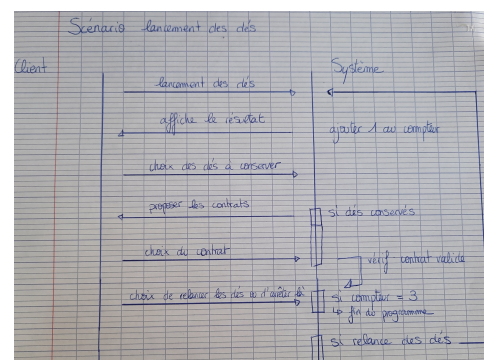 Scénario lancement des dés
Client
Système
lancement des dés
affiche le résultat
ajouter 1 au compteur
choix des dés à conserver
proposer les contrats
si dés conservés
choix du contrat
vérif contrat valide
choix de relancer les dés ou d'arrêter
si compteur = 3
↳ fin du programme
si relance des dés